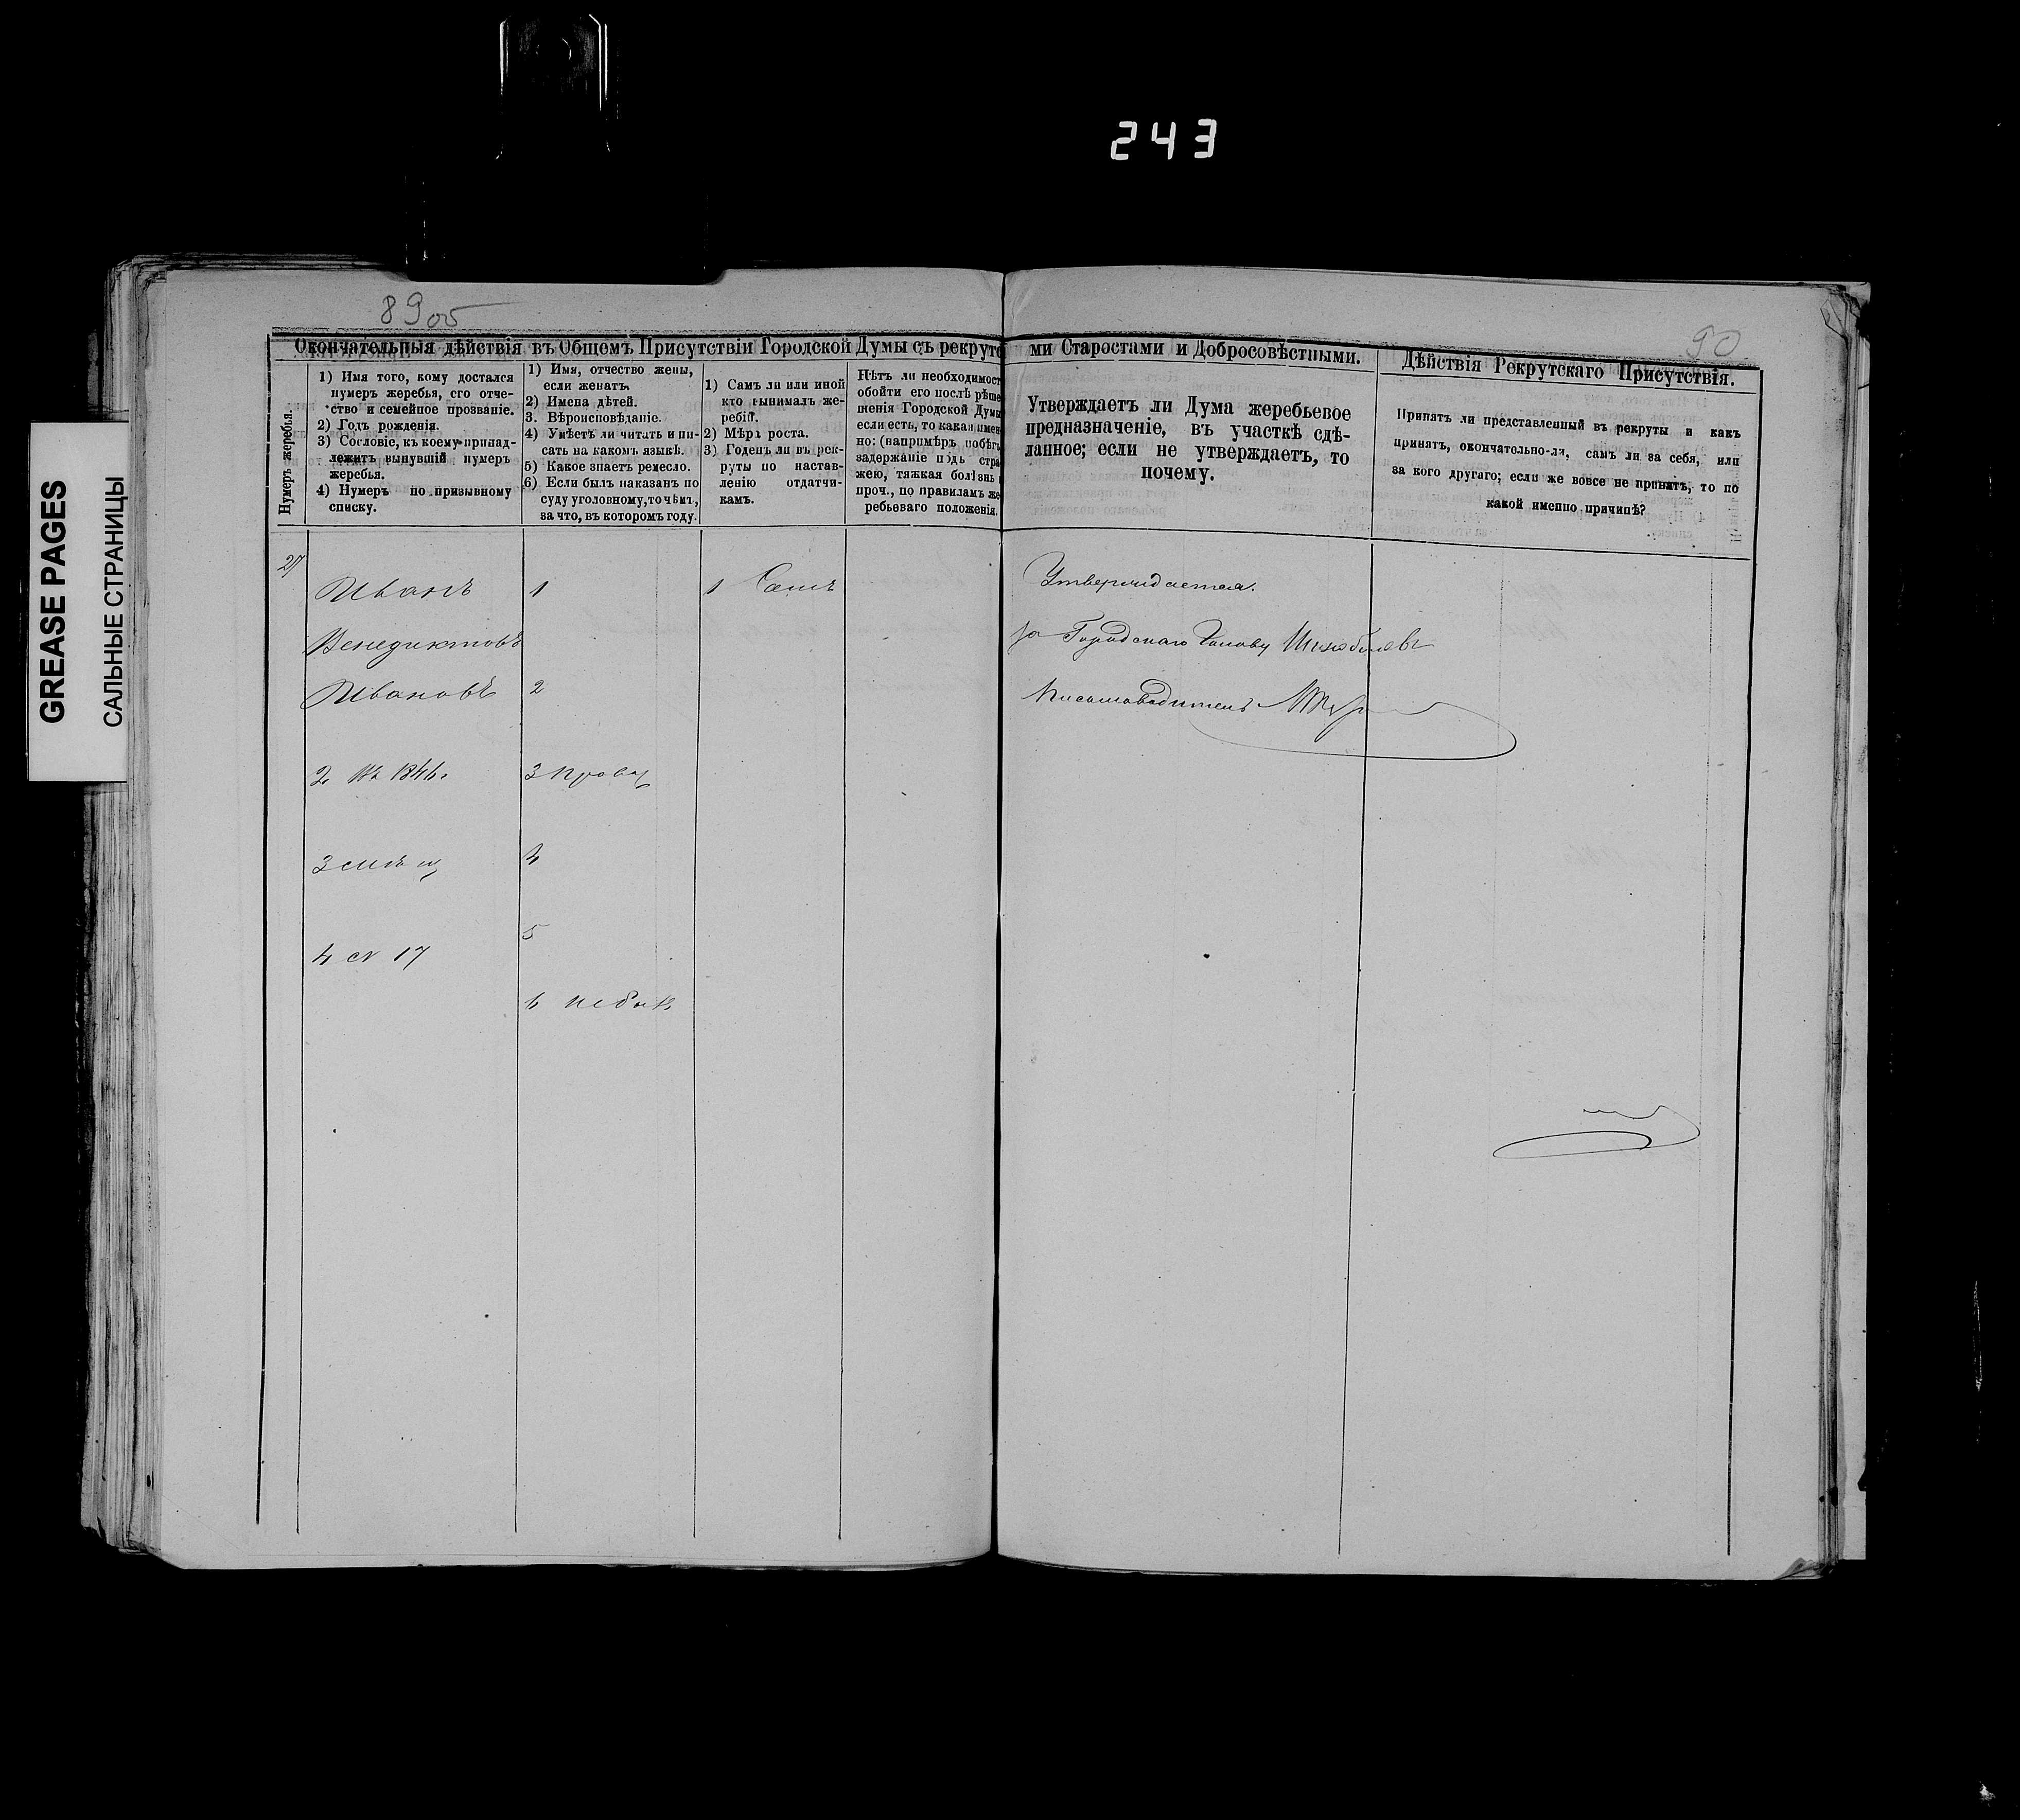 243
GREASE PAGES
САЛЬНЫЕ СТРАНИЦЫ
89об
90
Окончательныя дѣйствія въ Общемъ Присутствіи Городской Думы съ рекрутс
ми Старостами и Добросовѣстными.
Дѣйствія Рекрутскаго Присутствія.
Нумеръ жеребья.
1) Имя того, кому достался
нумеръ жеребья, его отче-
ство и семейное прозваніе.
2) Годъ рожденія.
3) Сословіе, къ коему принад-
лежитъ вынувшій нумеръ
жеребья.
4) Нумеръ по призывному
списку.
1) Имя, отчество жены,
если женатъ.
2) Имена дѣтей.
3. Вѣроисповѣданіе.
4) Умѣстъ ли читать и пи-
сать на какомъ языкѣ.
5) Какое знаетъ ремесло.
6) Если былъ наказанъ по
суду уголовному, то чѣмъ,
за что, въ которомъ году.
1) Самъ ли или иной
кто вынималъ же-
ребій.
2) Мѣра роста.
3) Годенъ ли въ рек-
руты по настав-
ленію отдатчи-
камъ.
Нѣтъ ли необходимост
обойти его послѣ рѣше
шенія Городской Думы
если есть, то какая имен
но: (напримѣръ побѣгъ
задержаніе подъ стра
жею, тяжкая болѣзнь и
проч., по правиламъ же
ребьеваго положенія.
Утверждаетъ ли Дума жеребьевое
предназначеніе, въ участкѣ сдѣ-
ланное; если не утверждаетъ, то
почему.
Принятъ ли представленный въ рекруты и какъ
принятъ, окончательно-ли, самъ ли за себя, или
за кого другаго; если же вовсе не принятъ, то по
какой именно причинѣ?
27
Иванъ
Венедиктовъ
Ивановъ
2 Въ 1846г
3 мѣщ
4 № 17
1
2
3 правос
4
5
6 не былъ
1 Самъ
Утверждается.
За Городскаго Голову
Письмоводитель